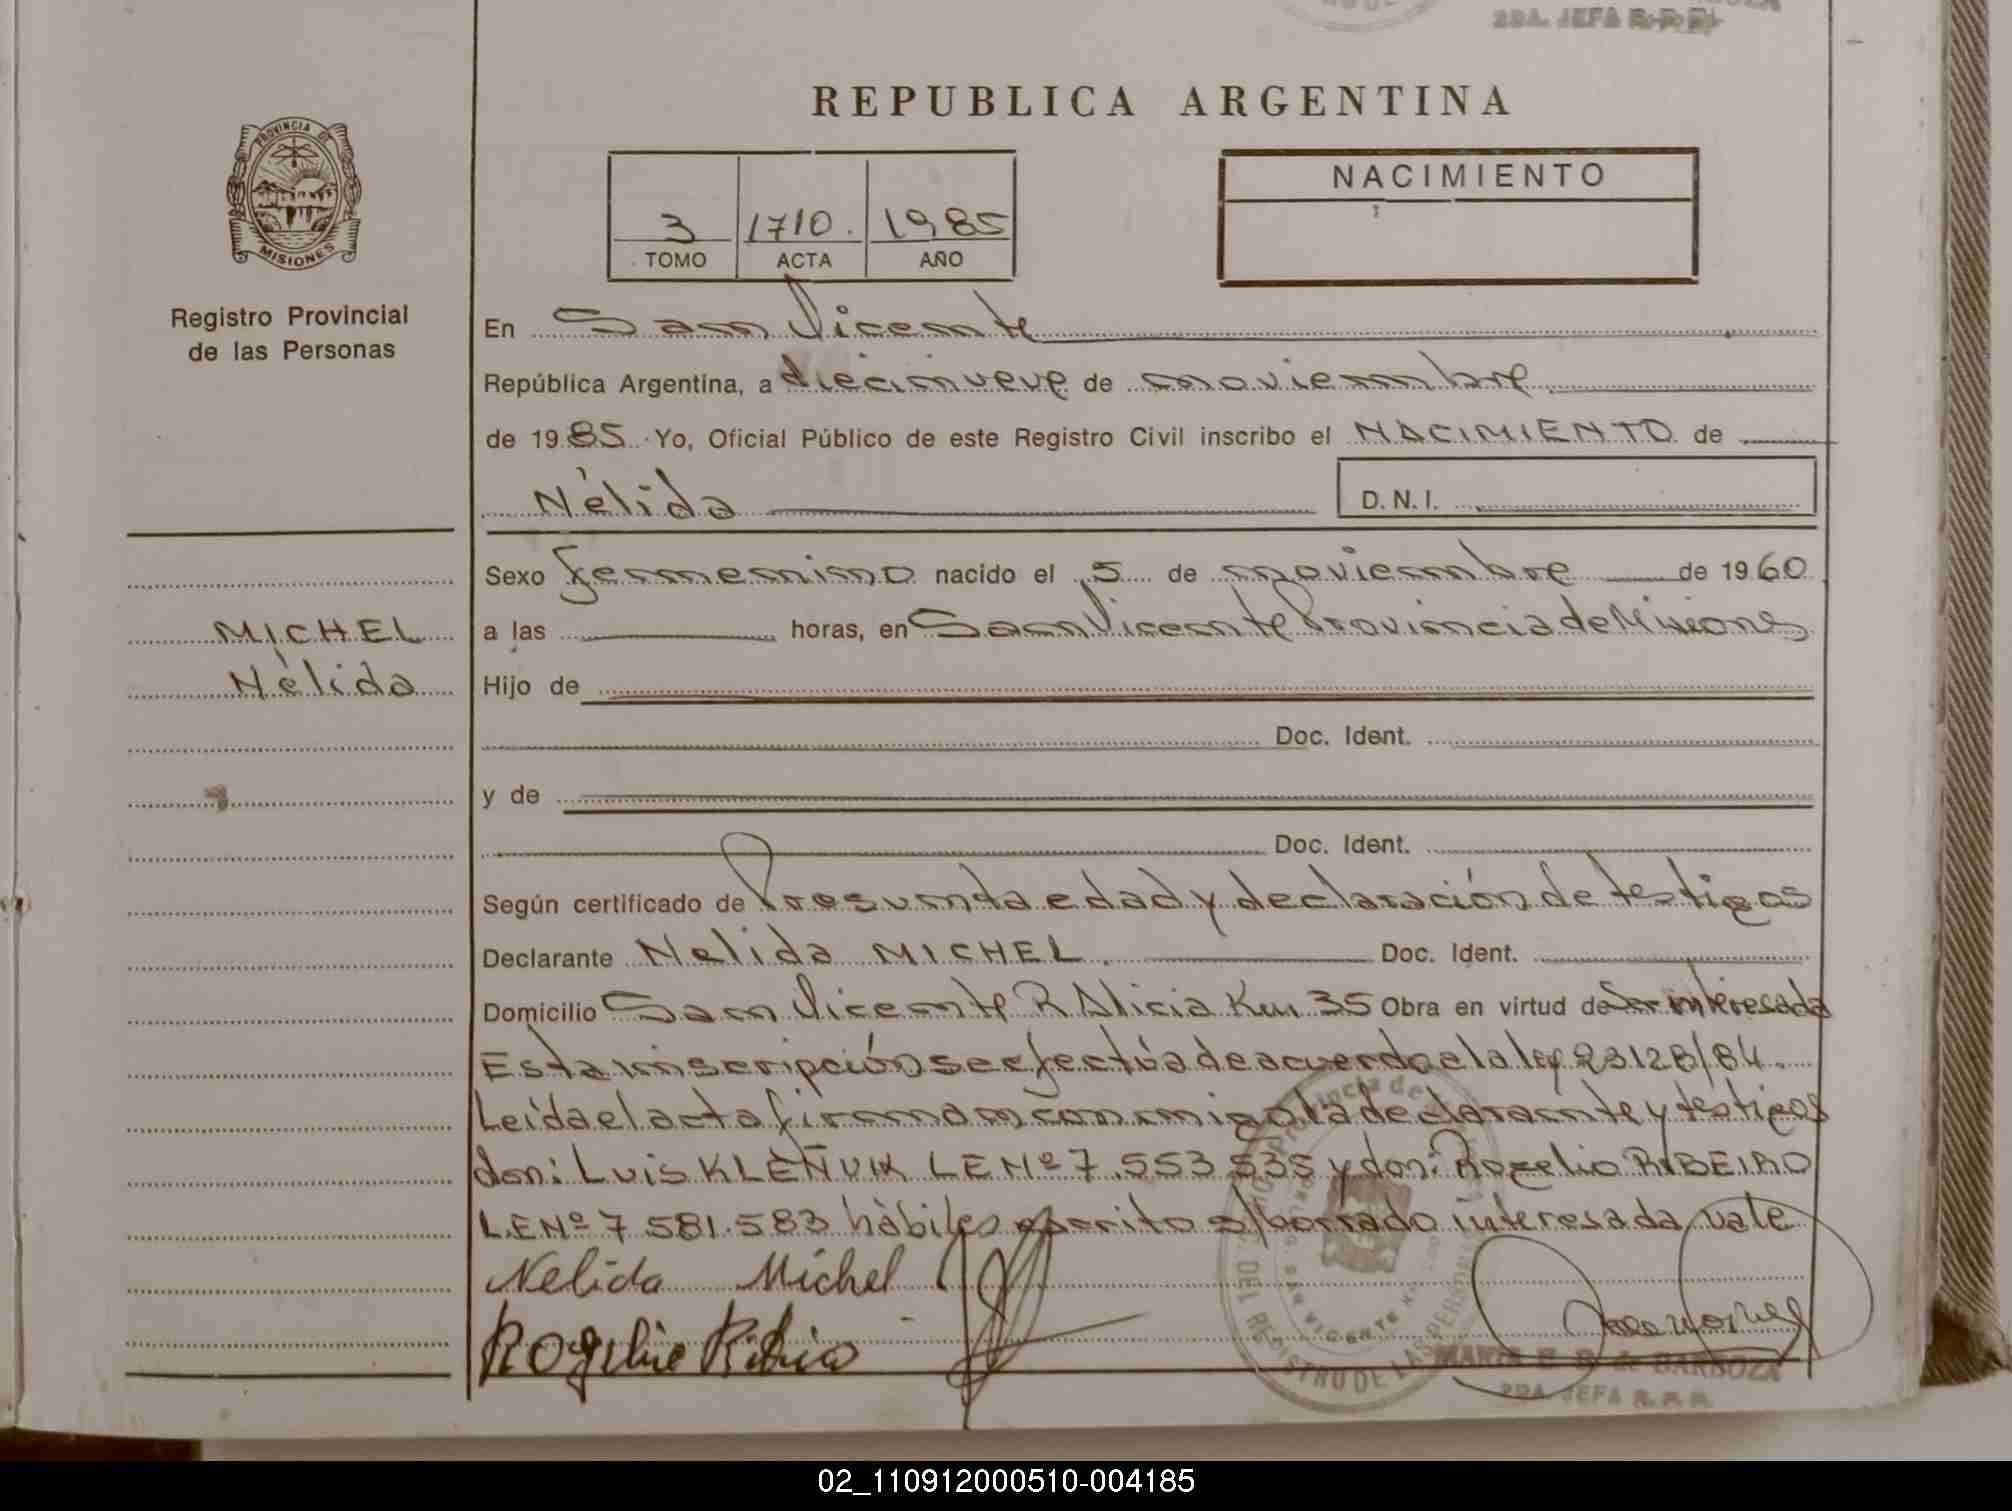 2DA. JEFA R.P.P.
REPUBLICA ARGENTINA
PROVINCIA DE
MISIONES
Registro Provincial
de las Personas
3 1710. 1985
TOMO ACTA AÑO
NACIMIENTO
En San Vicente
República Argentina, a diecinueve de noviembre
de 1985 Yo, Oficial Público de este Registro Civil inscribo el NACIMIENTO de
Nélida D.N.I.
Sexo femenino nacido el 5 de noviembre de 1960
MICHEL
Nélida
a las horas, en San Vicente Provincia de Misiones
Hijo de
Doc. Ident.
y de
Doc. Ident.
Según certificado de Presunta edad y declaración de testigos
Declarante Nelida MICHEL. Doc. Ident.
Domicilio San Vicente R Alicia Km 35 Obra en virtud de Ser interesada
Esta inscripción se efectúa de acuerdo a la ley 23128/84.
Leída el acta firman conmigo la declarante y testigos
don: Luis KLEÑUIK LE Nº 7.553.535 y don: Rogelio RIBEIRO
L.E Nº 7 581.583 hàbiles escrito s/borrado interesada vale
Nelida Michel
Rogelio Ribeiro
MARIA E. B. de BARBOZA
2DA. JEFA R.P.P.
02_110912000510-004185